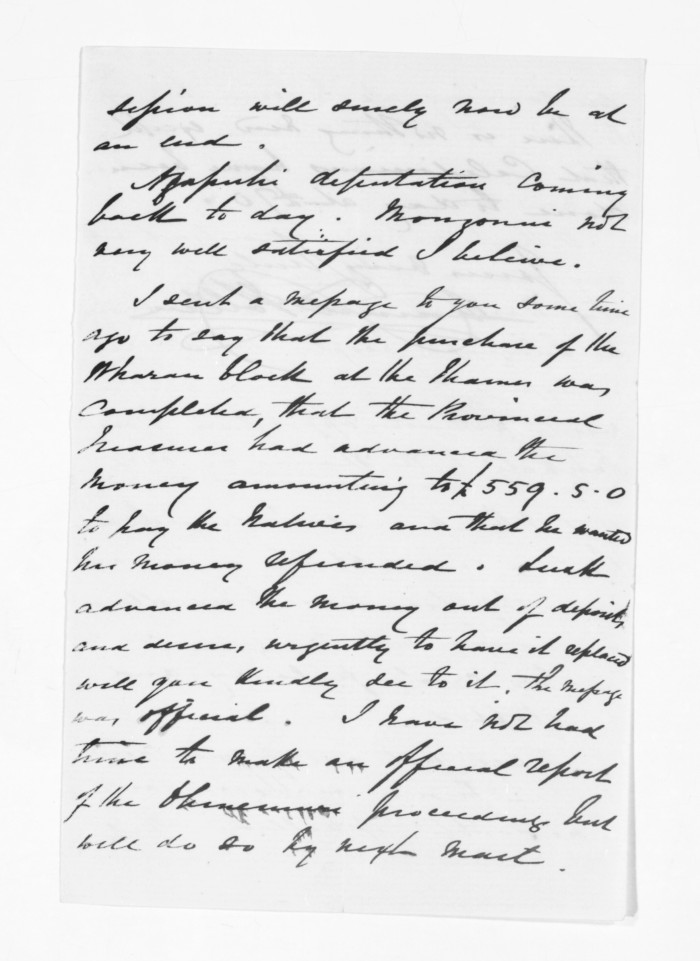 session will surely now be at
an end.
Ngapuhi deputation coming
back to day. Mongonui not
very well satisfied I believe.
I sent a message to you some time
ago to say that the purchase of the
Wharau block at the Thames was
completed, that the Provincial
Treasurer had advanced the
money amounting to £559.5.0
to pay the Natives and that he wanted
his money refunded. Lusk
advanced the money out of deposits,
and desires urgently to have it replaced
will you kindly see to it, the message
was official. I have not had
time to make an official report
of the Ohinemuri proceedings but
will do so by next mail.